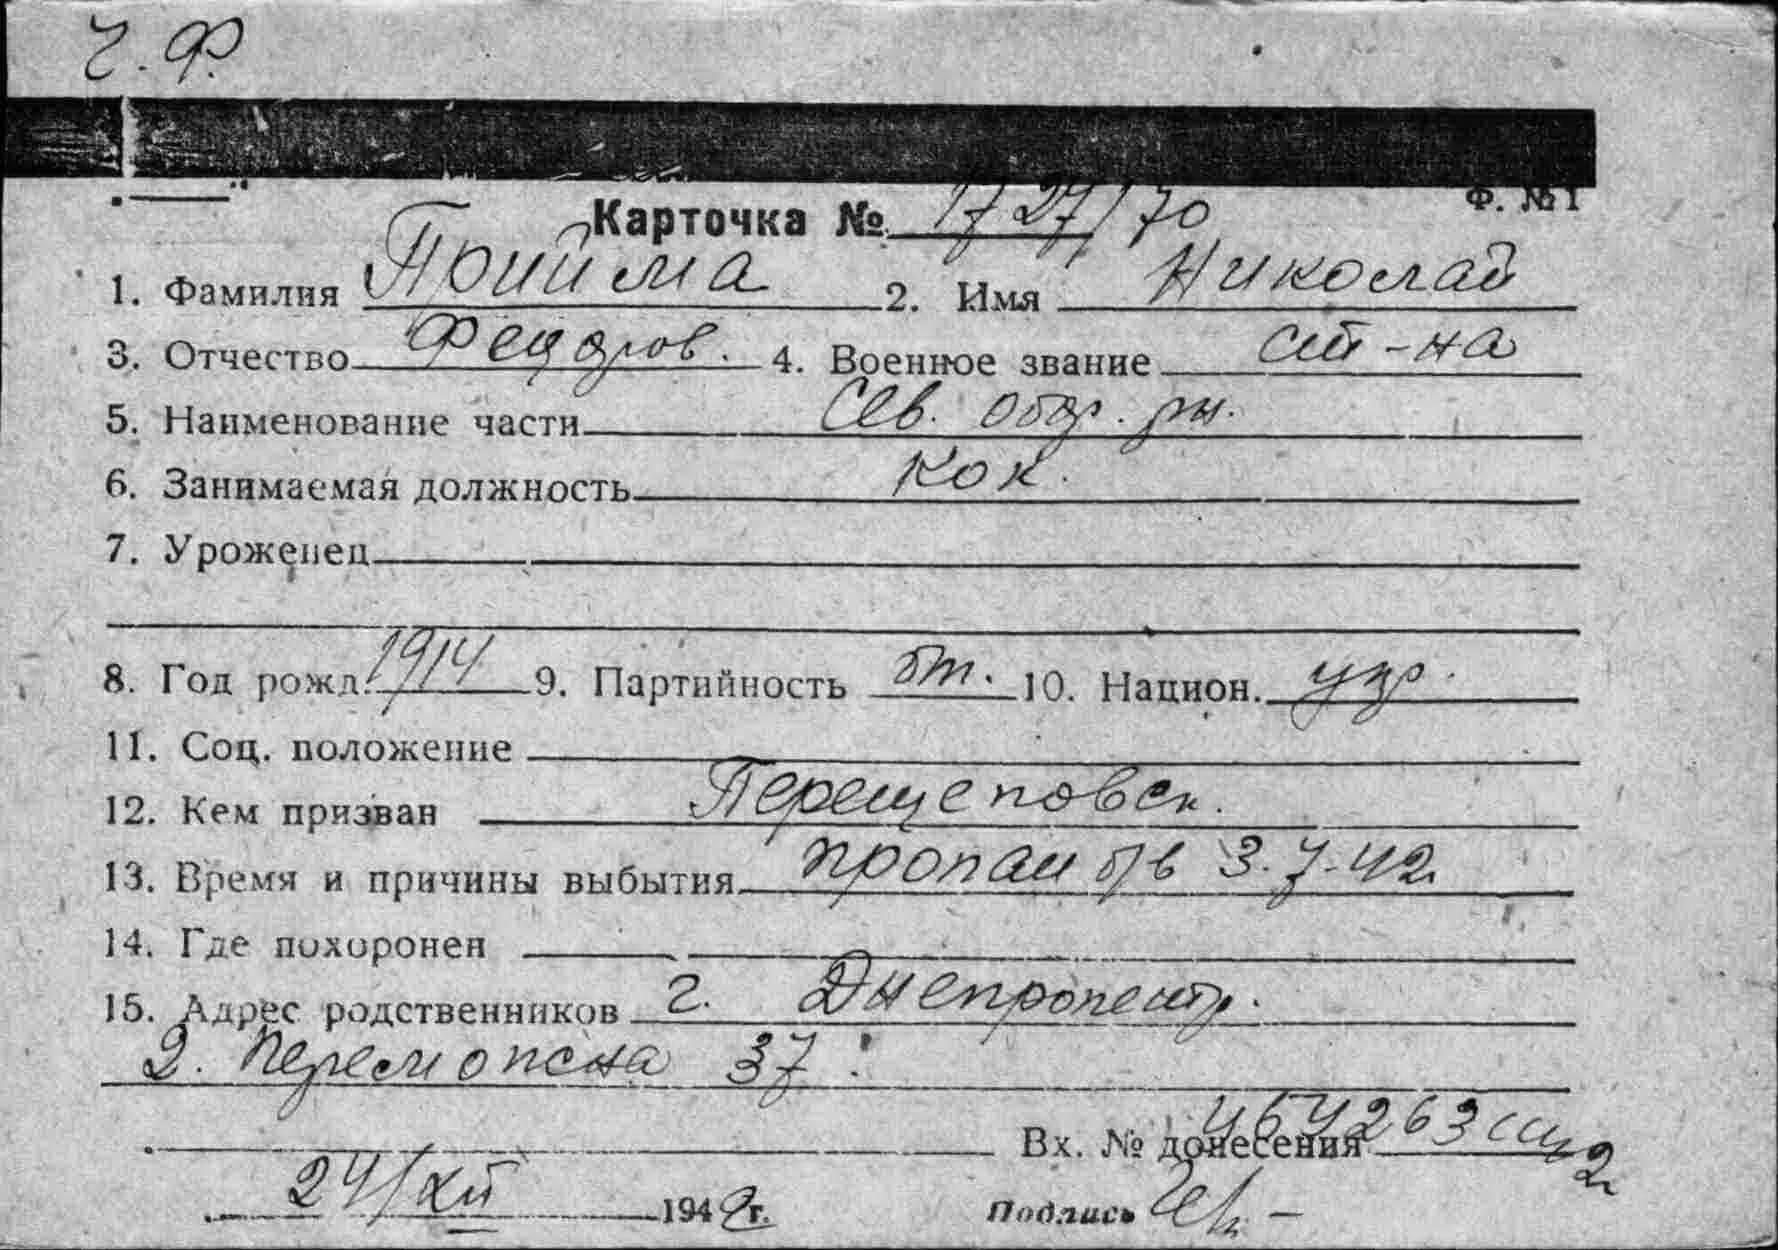 Ч. Ф.
Ф. № 1
Карточка № 1727/70
1. Фамилия Прийма 2. Имя Николай
3. Отчество Федоров. 4. Военное звание ст-на
5. Наименование части Сев. обор. рн.
6. Занимаемая должность кок.
7. Уроженец
8. Год рожд. 1914 9. Партийность бп. 10. Национ. укр.
11. Соц. положение
12. Кем призван Перещеповск.
13. Время и причины выбытия пропал б/в 3.7.42
14. Где похоронен
15. Адрес родственников г. Днепропетр.
2. Перемопска 37
Вх. № донесения
24/XII 1942 г. Подпись